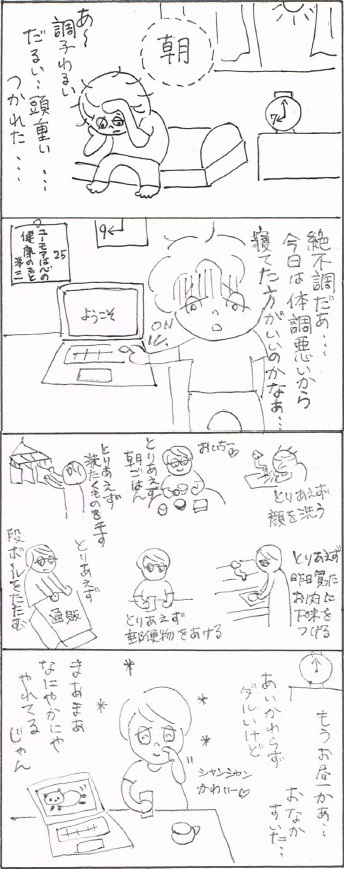 朝
7
あ〜
調子わるい
だるい…頭重い
つかれた…
絶不調だぁ…
今日は体調悪いから
寝てた方がいいのかなぁ…
9
25
ユーモアは心の
健康のもと
洋三
ようこそ
ON
とりあえず
顔を洗う
おいちー
とりあえず
朝ごはん
とりあえず
洗たくものを干す
とりあえず
昨日買った
お肉に
下味を
つける
とりあえず
郵便物をあける
とりあえず
段ボールをたたむ
通販
もうお昼かぁ…
おなか
すいた…
あいかわらず
ダルいけど
シャンシャン
かわいー
まあまあ
なにやかにや
やれてる
じゃん